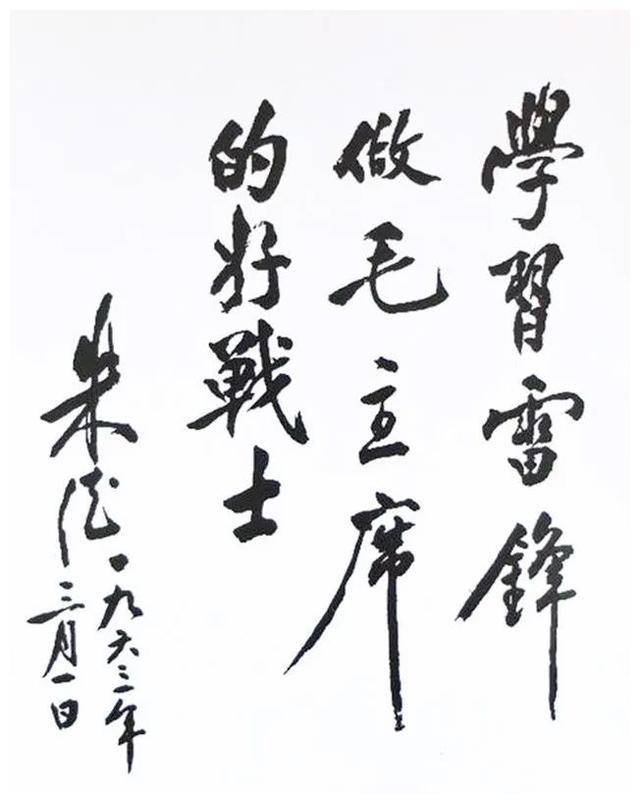 學習雷锋
做毛主席
的好戰士
朱德
一九六三年
三月一日